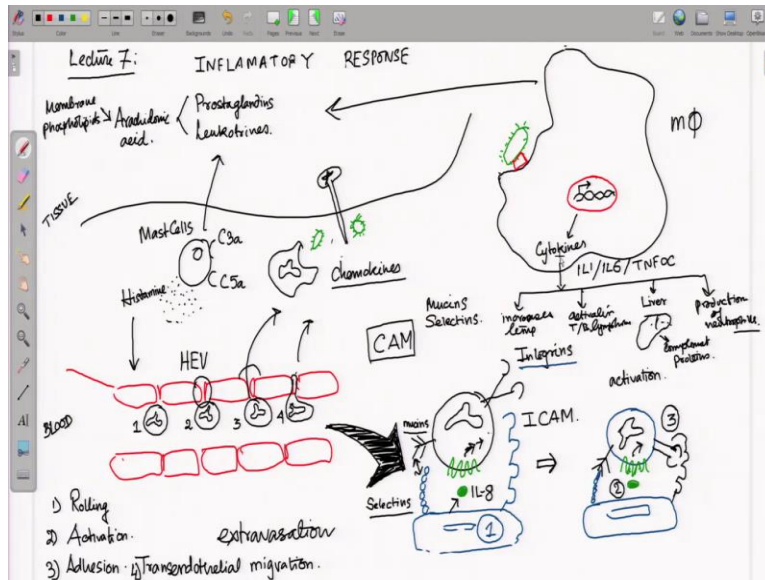 Lecture 7: INFLAMATORY RESPONSE
Membrane phospholipids
Arachidonic acid.
Prostaglandins
Leukotrines.
mϕ
TISSUE
Mast Cells
C3a
C5a
Histamine
chemokines
Cytokines
IL1/IL6/TNFα
increases temp
activation T/B lymphocyte
Liver
complement proteins.
production of neutrophils
activation.
Mucins
Selectins.
CAM
Integrins
HEV
BLOOD
1 2 3 4
mucins
ICAM.
Selectins
IL-8
1
2
3
1) Rolling
2) Activation.
3) Adhesion. 4) Transendothelial migration.
extravasation